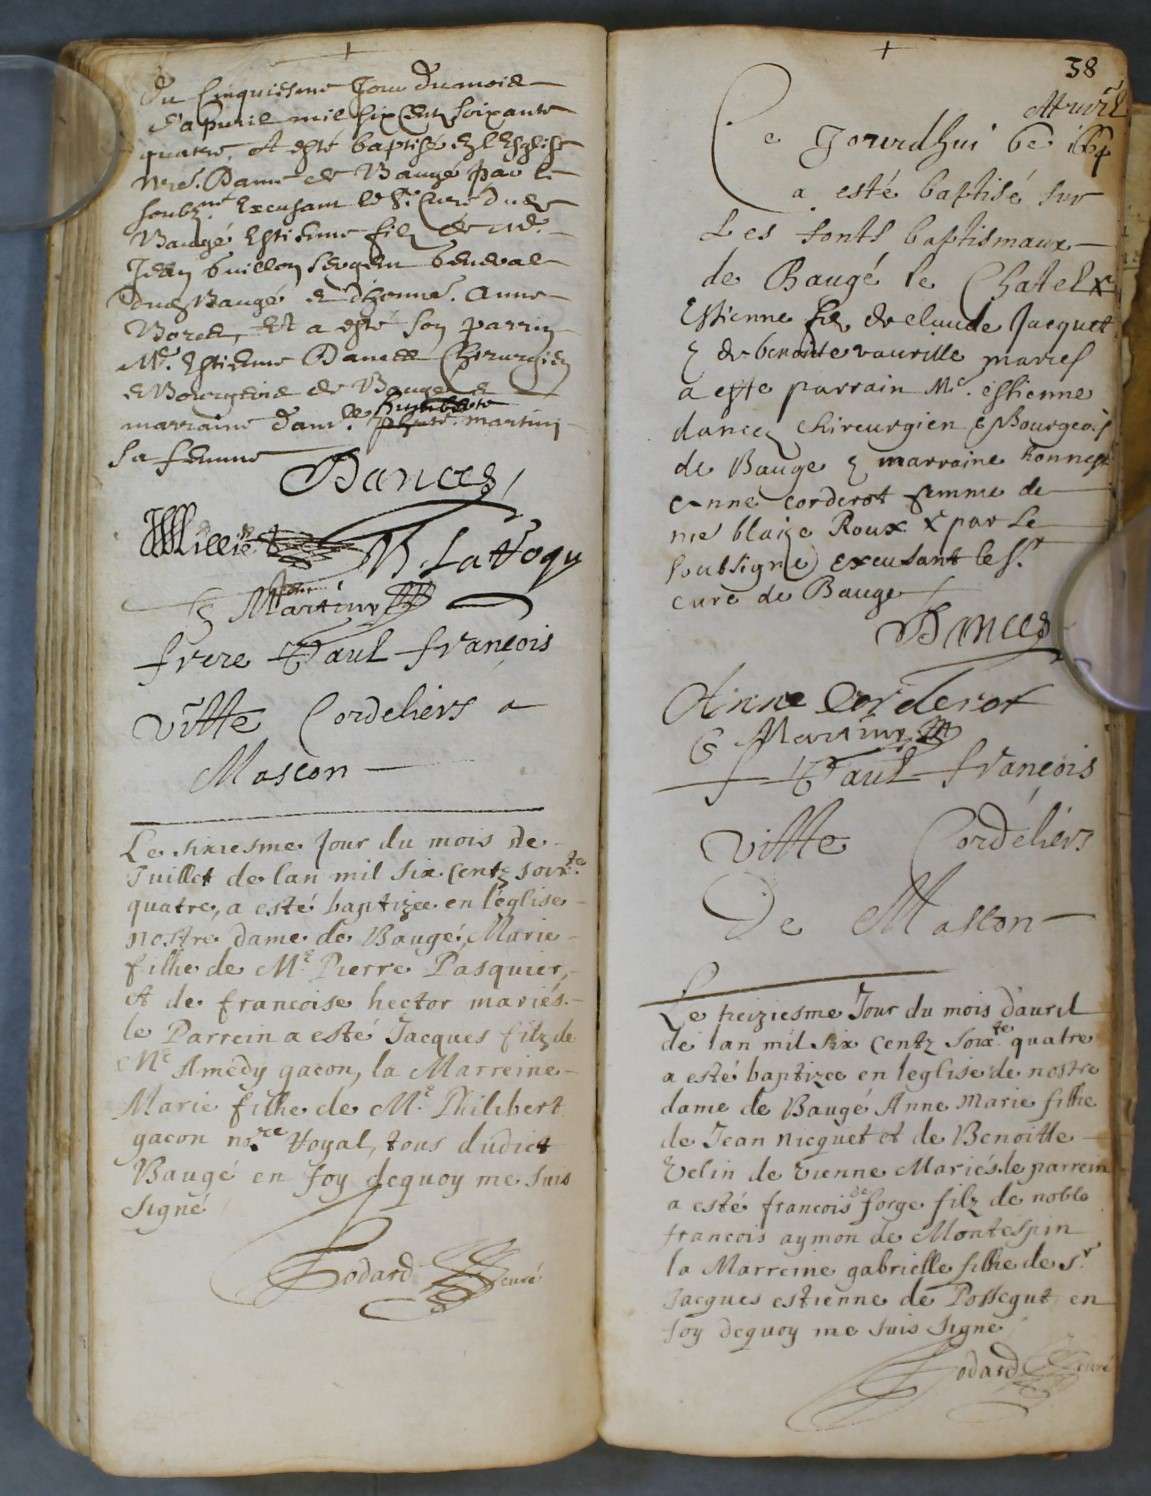 Du Cinquiesme Jour du mois
d'apvril mil six Cent soixante
quatre, A esté baptisé en l'Esglise
nre. Dame de Baugé par le
soubz.né Excusant le Sr. Curé dud.
Baugé Estienne filz de Me.
Jean Guillon sergent General
dud Baugé et d'honne. Anne
Borel, Et a esté son parrin
Me. Estienne Dances Chirurgien
et Bourgeois de Baugé et
marraine dam.le Philiberte martin
sa femme
Dances
Milliet
M. La Voquy
G Martin
frere Paul françois
Ville Cordeliers a
Mascon
Le sixiesme Jour du mois de
Juillet de lan mil six Centz soix.te
quatre, a esté baptizee en l'église
nostre dame de Baugé, Marie
filhe de Me. Pierre Pasquier,
et de francoise hector mariés.
le Parrein a esté Jacques filz de
Me Amedy gacon, la Marreine
Marie filhe de Me. Philibert
gacon no.re Royal, tous dudict
Baugé en foy dequoy me suis
signé
Godard curé
38
Ce Jourdhui 6e Avril
1664
a esté baptisé sur
Les fonts baptismaux
de Baugé le Chatel x
Estienne filz de claude Jacquet
& de benoite vaurille mariés
a este parrain Me. estienne
dances chireurgien & Bourgeois
de Bauge & marraine honneste
anne corderot femme de
me blaize Roux x par Le
soubsigné excusant le Sr.
curé de Baugé
Dances
Anne Corderot
G Martin
f Paul françois
Ville Cordeliers
De Mascon
Le treiziesme Jour du mois d'auril
de lan mil six Centz soix.te quatre
a esté baptizee en leglise de nostre
dame de Baugé Anne Marie filhe
de Jean nicquet et de Benoitte
Velin de vienne Mariés. le parrein
a esté francois de forge filz de noble
francois aymon de Montespin
la Marreine gabrielle filhe de Sr
Jacques estienne de Possegut en
foy dequoy me suis signe
Godard curé